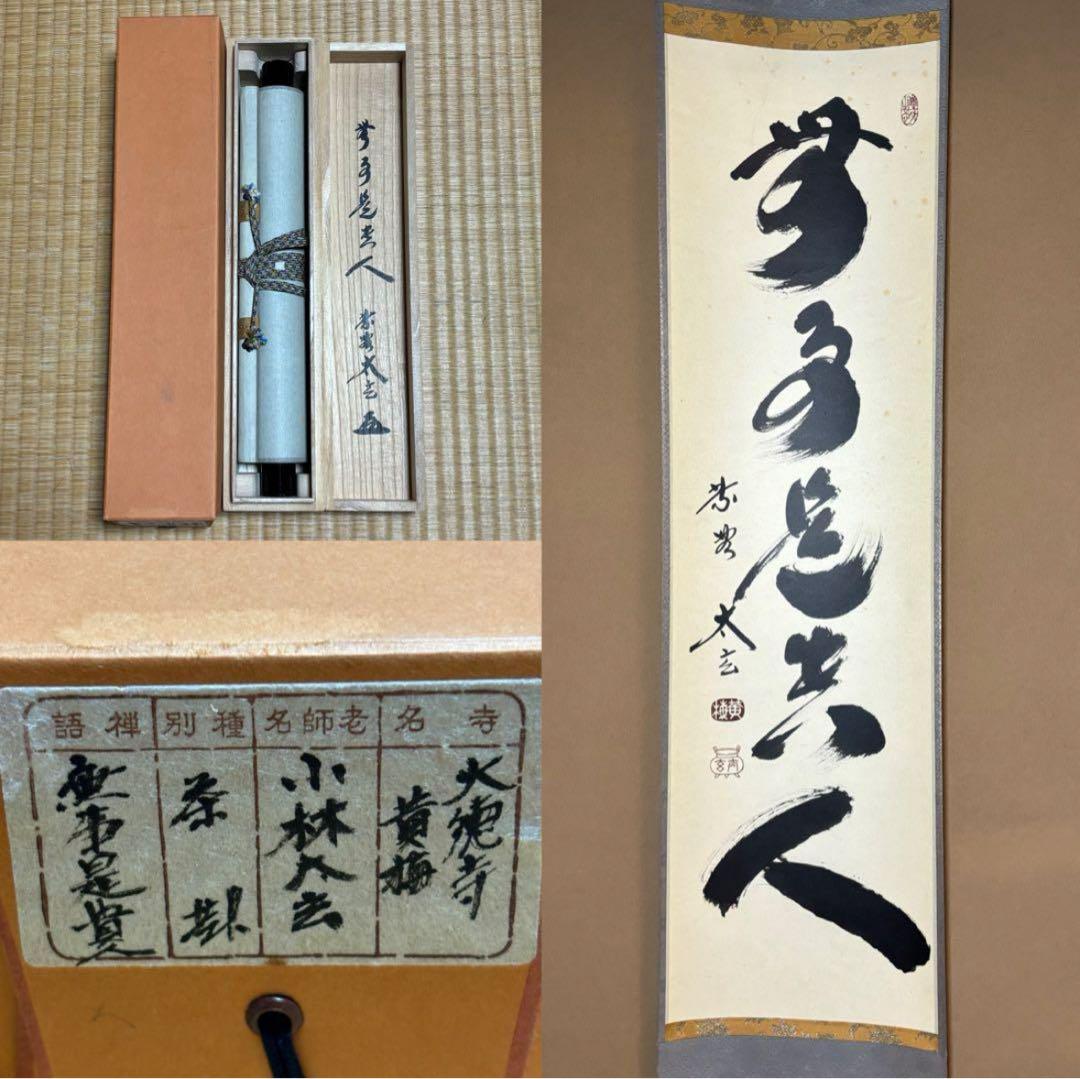 無事是貴人
紫野
太玄
黄梅
無事是貴人
紫野
太玄
寺名
老師名
種別
禅語
大徳寺
黄梅
小林太玄
茶掛
無事是貴人